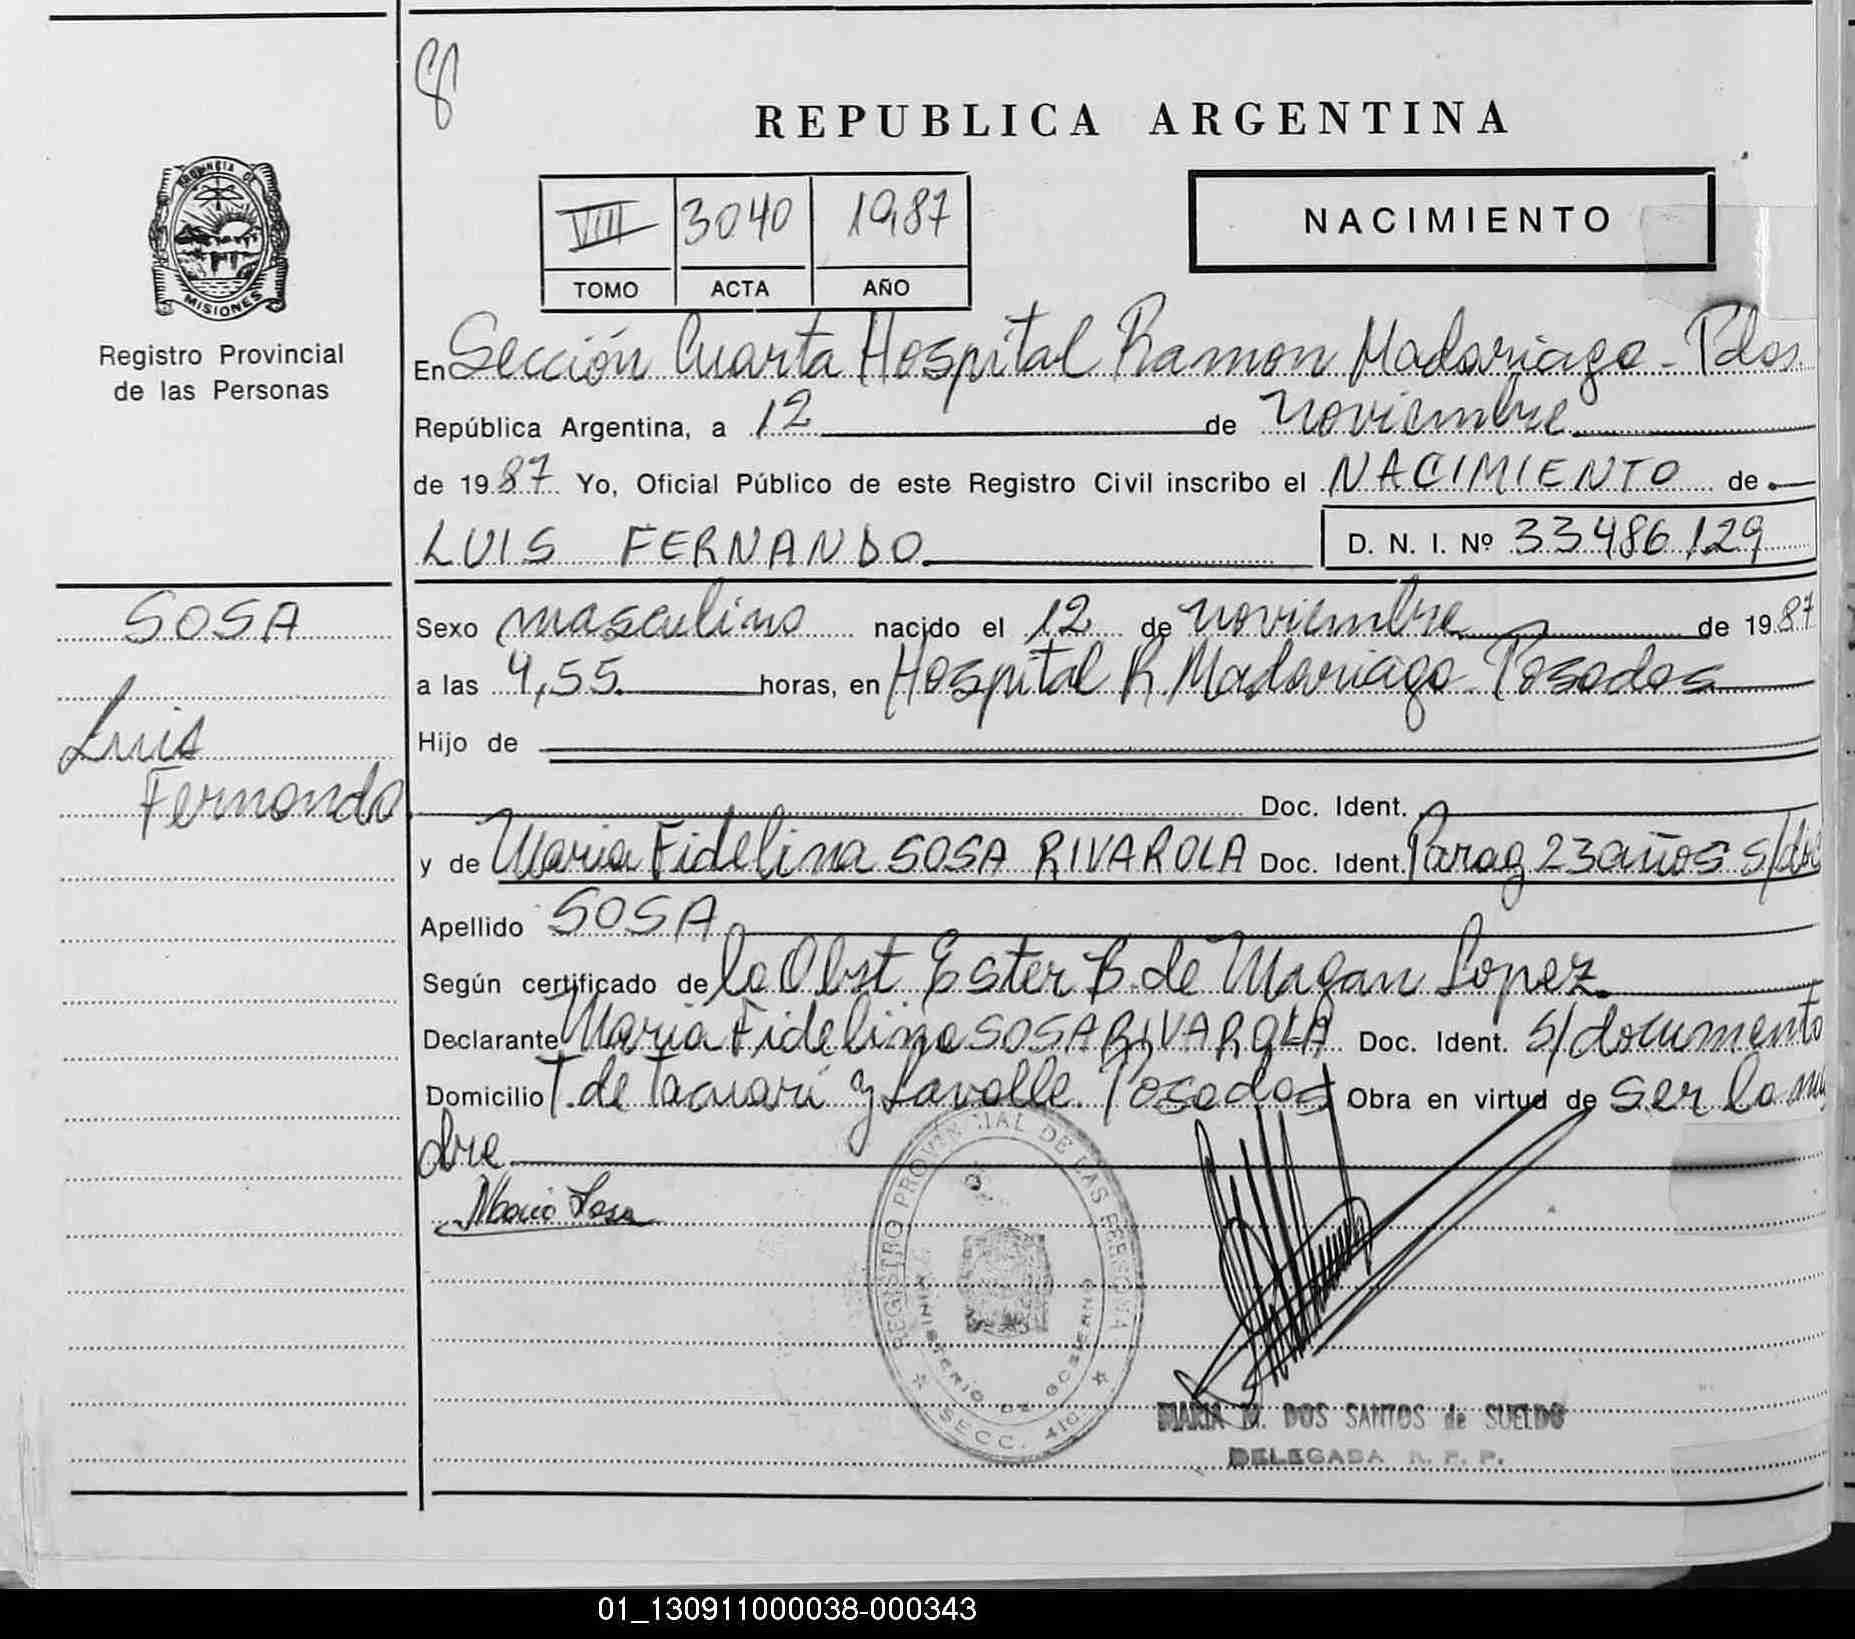 8
REPUBLICA ARGENTINA
PROVINCIA DE
MISIONES
Registro Provincial
de las Personas
VIII 3040 1987
TOMO ACTA AÑO
NACIMIENTO
En Sección Cuarta Hospital Ramon Madariaga - Pdas.
República Argentina, a 12 de noviembre
de 1987 Yo, Oficial Público de este Registro Civil inscribo el NACIMIENTO de
LUIS FERNANDO D. N. I. Nº 33486129
SOSA
Luis
Fernando
Sexo masculino nacido el 12 de noviembre de 1987
a las 4,55 horas, en Hospital R. Madariaga Posadas
Hijo de
Doc. Ident.
y de Maria Fidelina SOSA RIVAROLA Doc. Ident. Parag 23 años s/doc
Apellido SOSA
Según certificado de la Obst Ester B. de Magan Lopez.
Declarante Maria Fidelina SOSA RIVAROLA Doc. Ident. s/documento
Domicilio T. de Tacuarí y Lavalle. Posadas Obra en virtud de ser la ma
dre
Maria Sosa
REGISTRO PROVINCIAL DE LAS PERSONAS
MINISTERIO DE GOBIERNO
SECC. 4ta
MARIA M. DOS SANTOS de SUELDO
DELEGADA R. P. P.
01_130911000038-000343